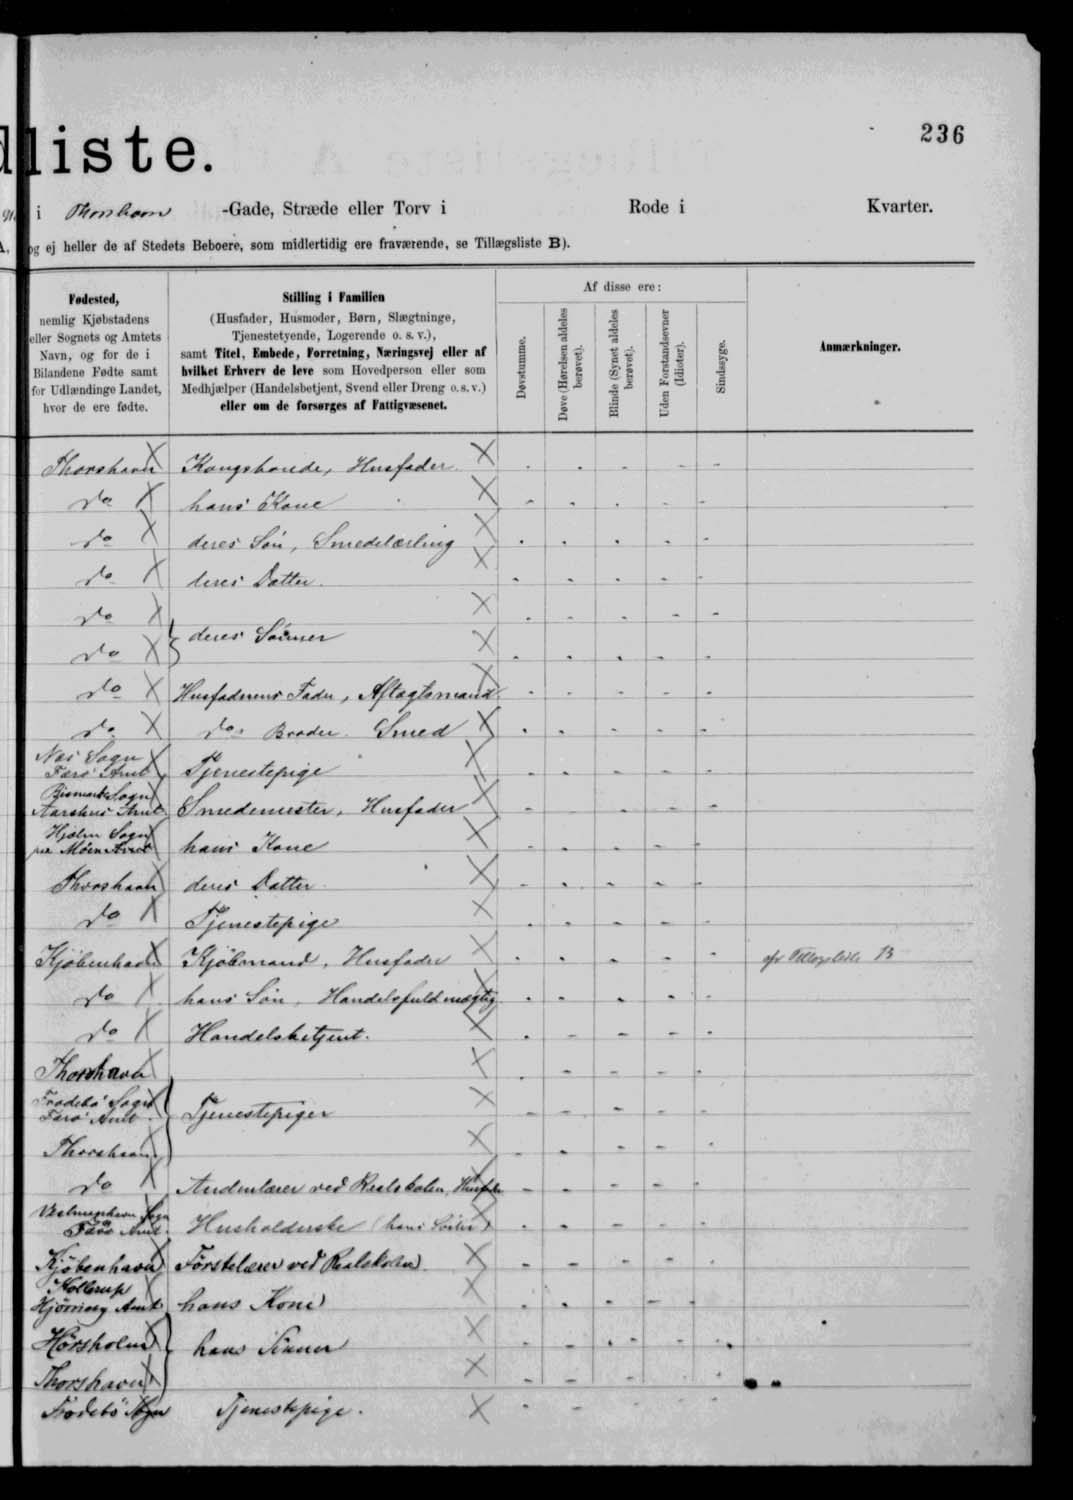 236
dliste.
i Thorshavn -Gade, Stræde eller Torv i Rode i Kvarter.
A, og ej heller de af Stedets Beboere, som midlertidig ere fraværende, se Tillægsliste B).
Fødested,
nemlig Kjøbstadens
eller Sognets og Amtets
Navn, og for de i
Bilandene Fødte samt
for Udlændinge Landet,
hvor de ere fødte.
Stilling i Familien
(Husfader, Husmoder, Børn, Slægtninge,
Tjenestetyende, Logerende o. s. v.),
samt Titel, Embede, Forretning, Næringsvej eller af
hvilket Erhverv de leve som Hovedperson eller som
Medhjælper (Handelsbetjent, Svend eller Dreng o. s. v.)
eller om de forsørges af Fattigvæsenet.
Af disse ere:
Døvstumme.
Døve (Hørelsen aldeles
berøvet).
Blinde (Synet aldeles
berøvet).
Uden Forstandsevner
(Idioter).
Sindssyge.
Anmærkninger.
Thorshavn Kongsbonde, Husfader
do hans Kone
do deres Sön, Smedelærling
do deres Datter.
do
do deres Sönner
do Husfaderens Fader, Aftægtsmand
do do Broder. Smed
Næs Sogn
Færö Amt Tjenestepige
Sogn
Aarhus Amt Smedemester, Husfader
Hjelm Sogn
Möen hans Kone
Thorshavn deres Datter
do Tjenestepige
Kjöbenhavn Kjöbmand, Husfader Tillægsliste B
do hans Sön, Handelsfuldmægtig
do Handelsbetjent.
Thorshavn
Frodebö Sogn
Færö Amt Tjenestepiger
Thorshavn
do Andenlærer ved Realskolen, Husfader
Vestmanhavn Sogn
Færö Amt Husholderske (hans Söster)
Kjöbenhavn Förstelærer ved Realskolen.
Kollerup
Hjörring Amt hans Kone
Hörsholm hans Sönner
Thorshavn
Frodebö Sogn Tjenestepige.